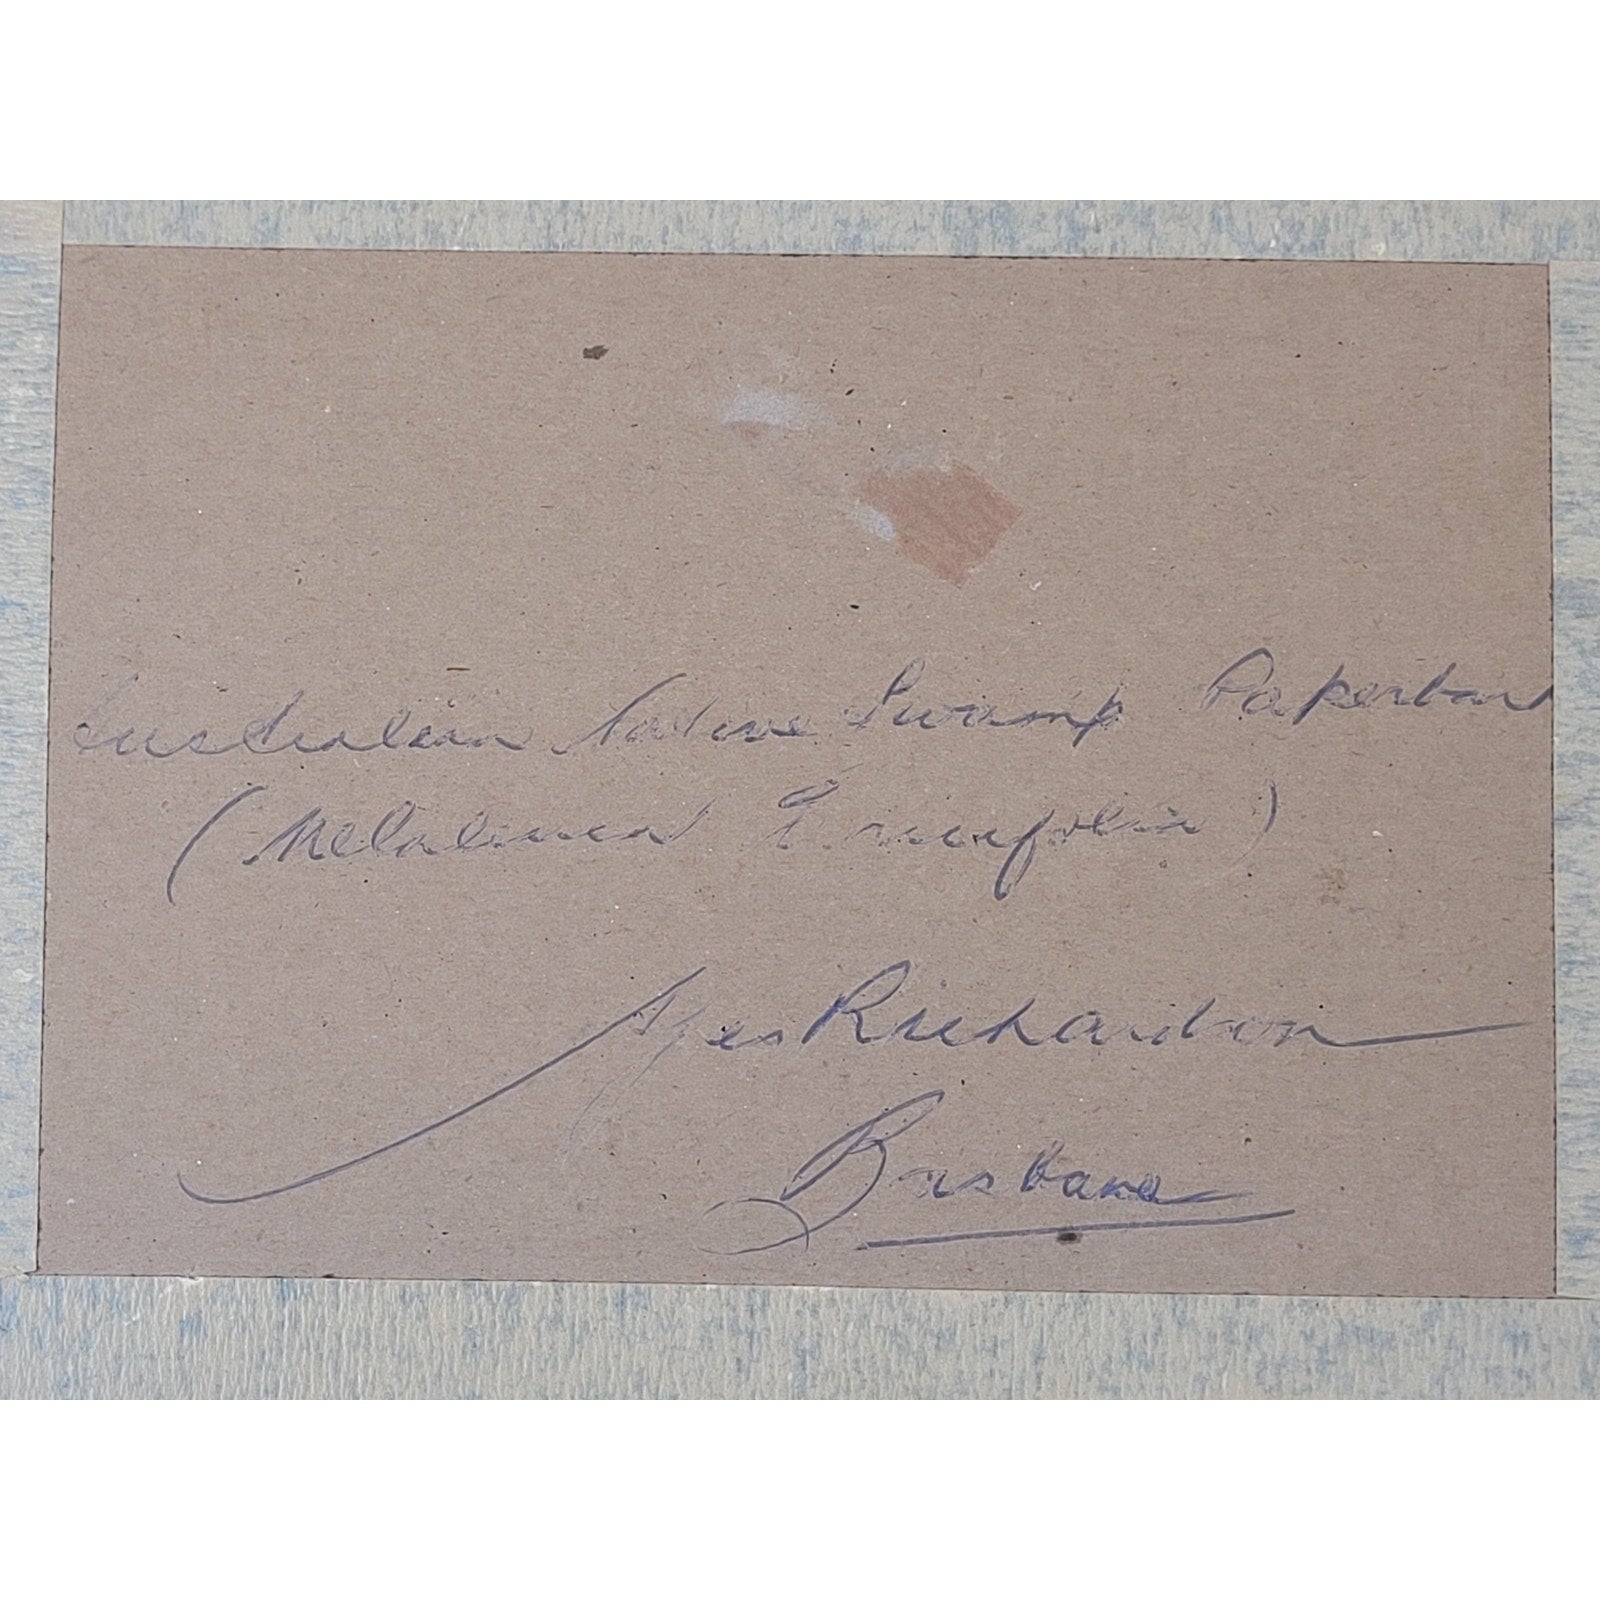 Australian Native Swamp Paperbark
(Melaleuca Ericifolia)
Richardson
Brisbane